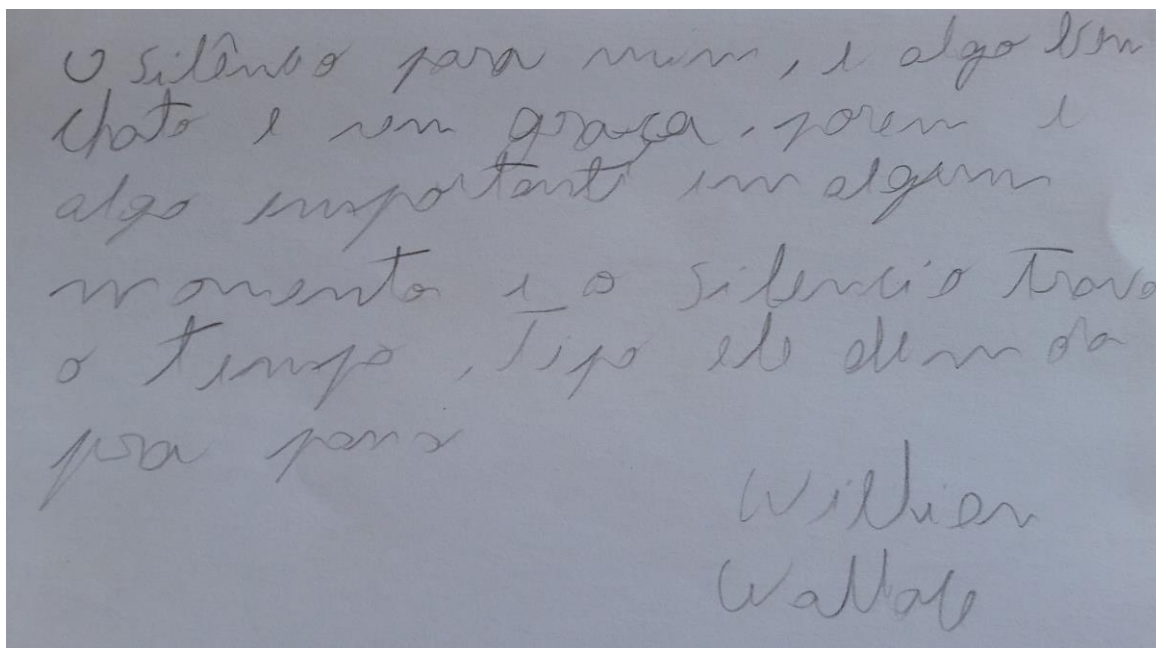 O silêncio para mim, e algo bem
chato e sem graça, porem e
algo importante em algum
momento e o silencio trava
o tempo, Tipo ele demora
pra
Willian
Wallace